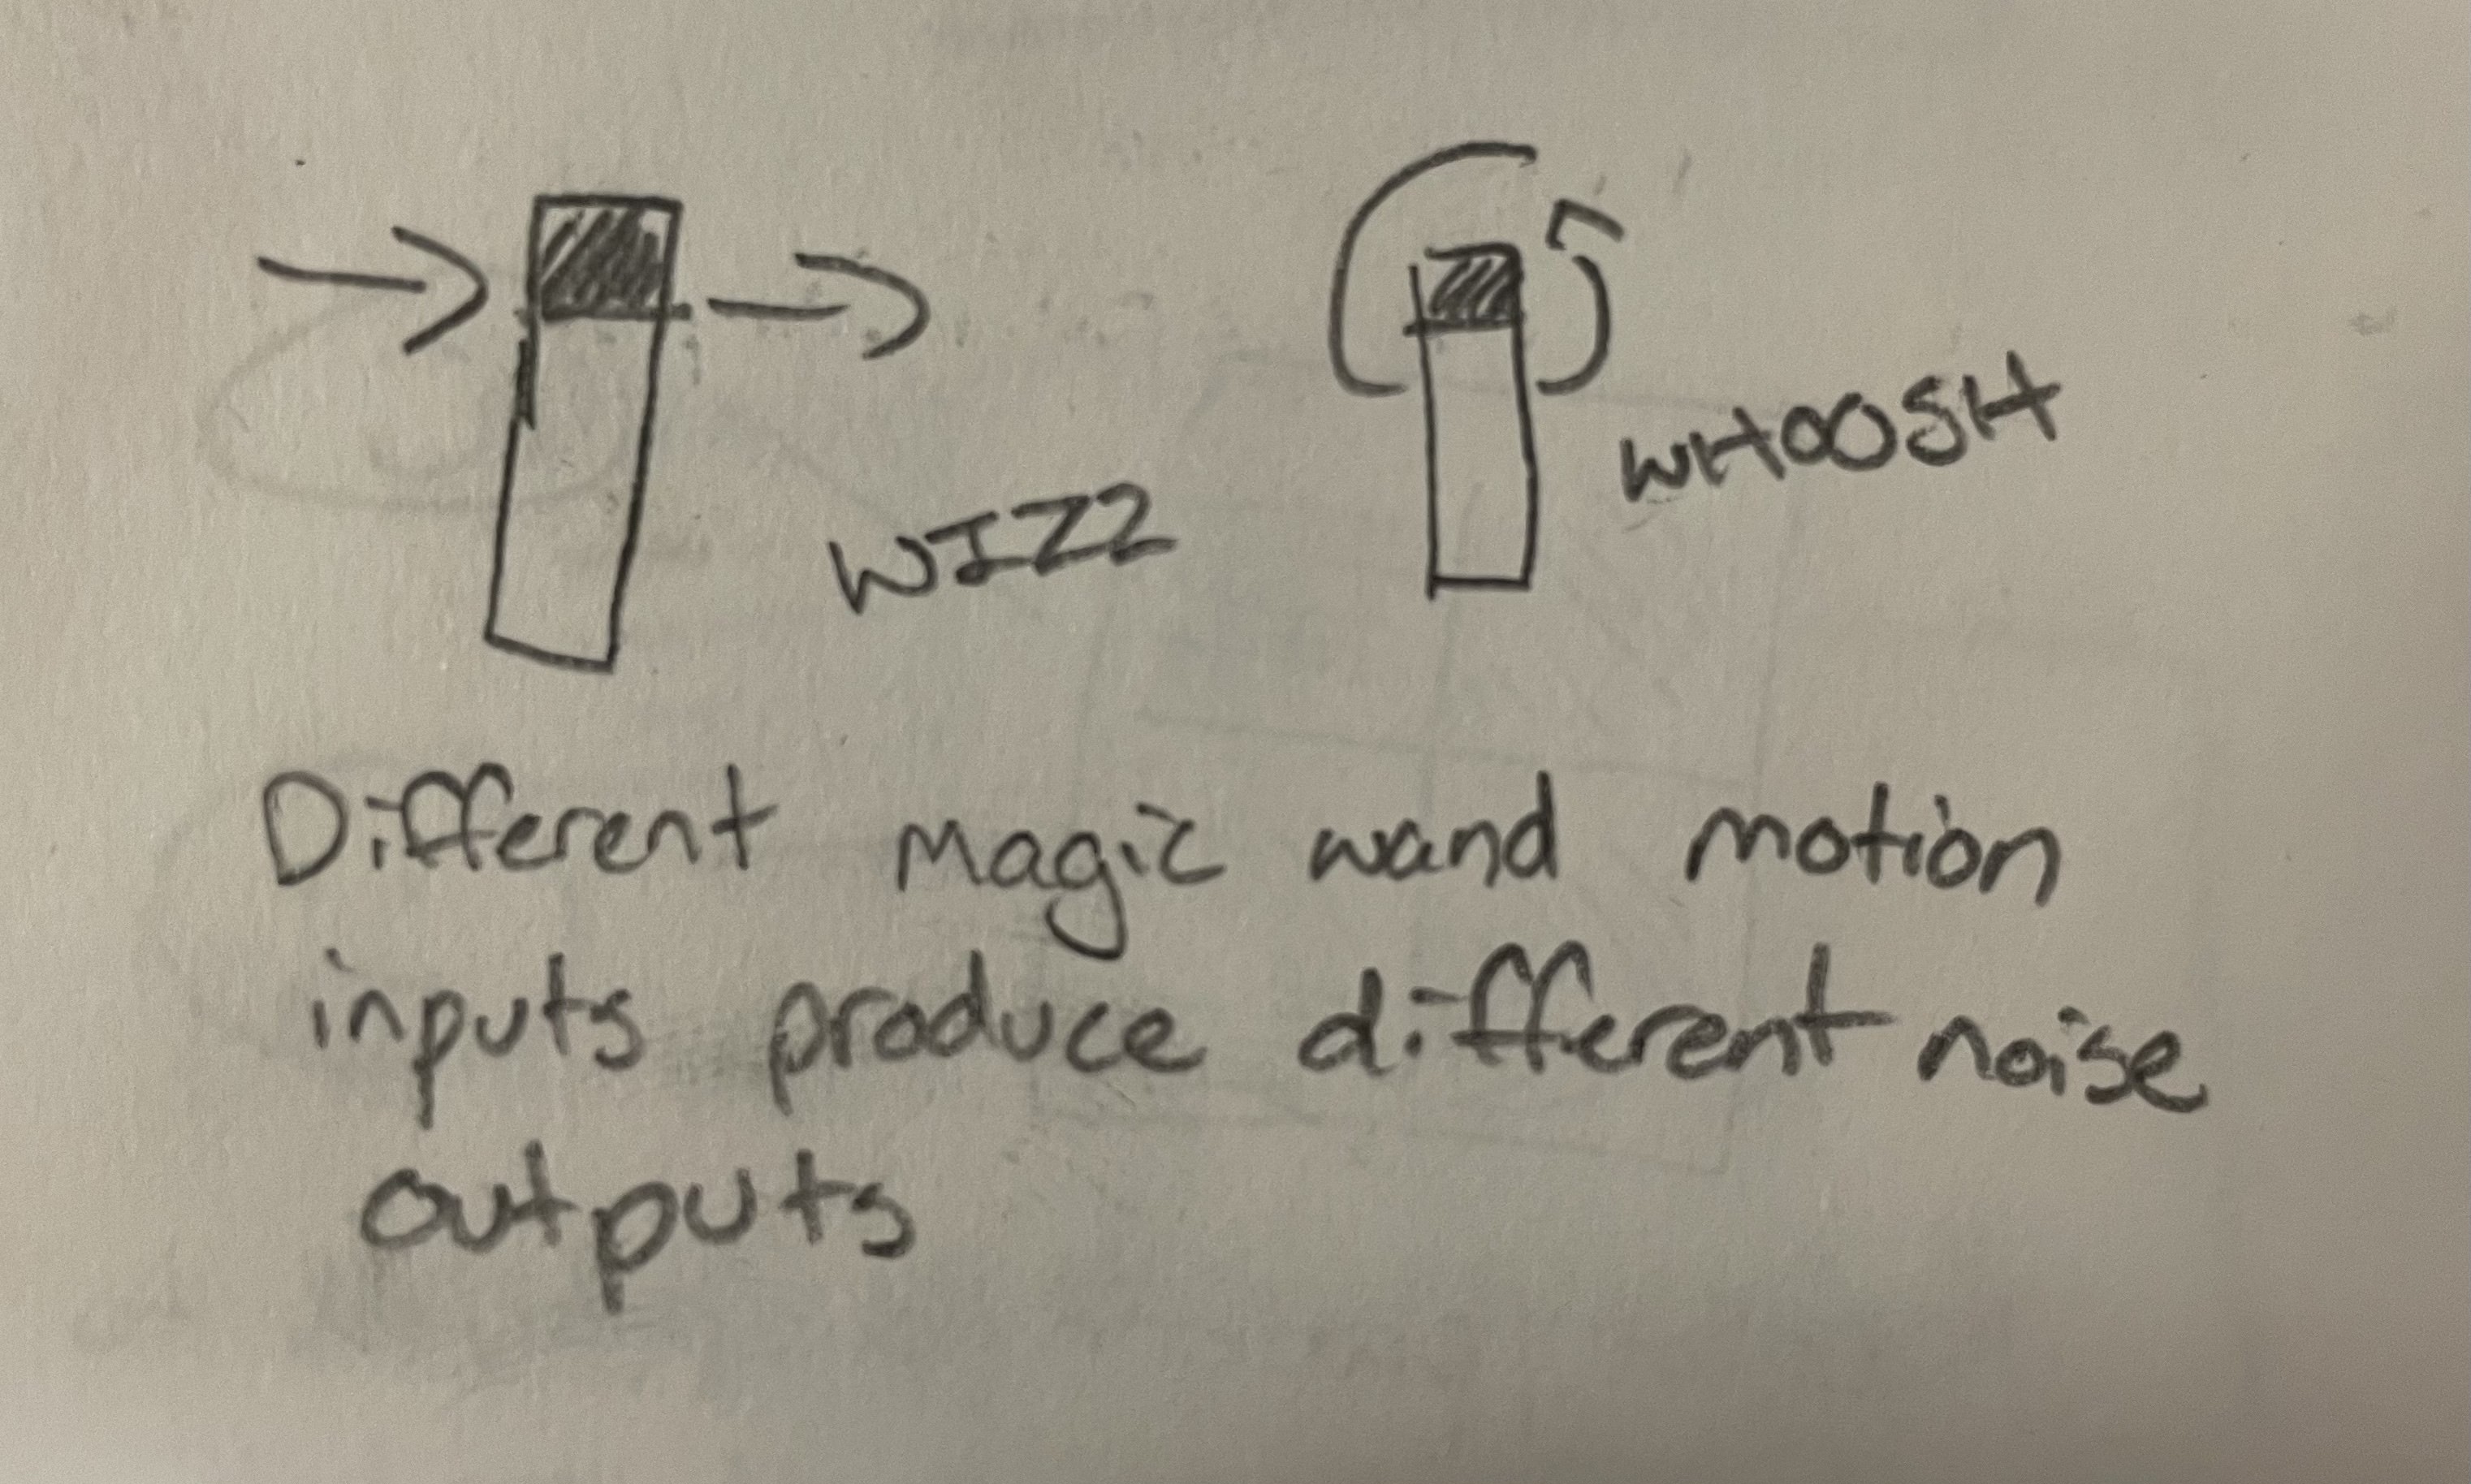 WIZZ
WHOOSH
Different magic wand motion
inputs produce different noise
outputs